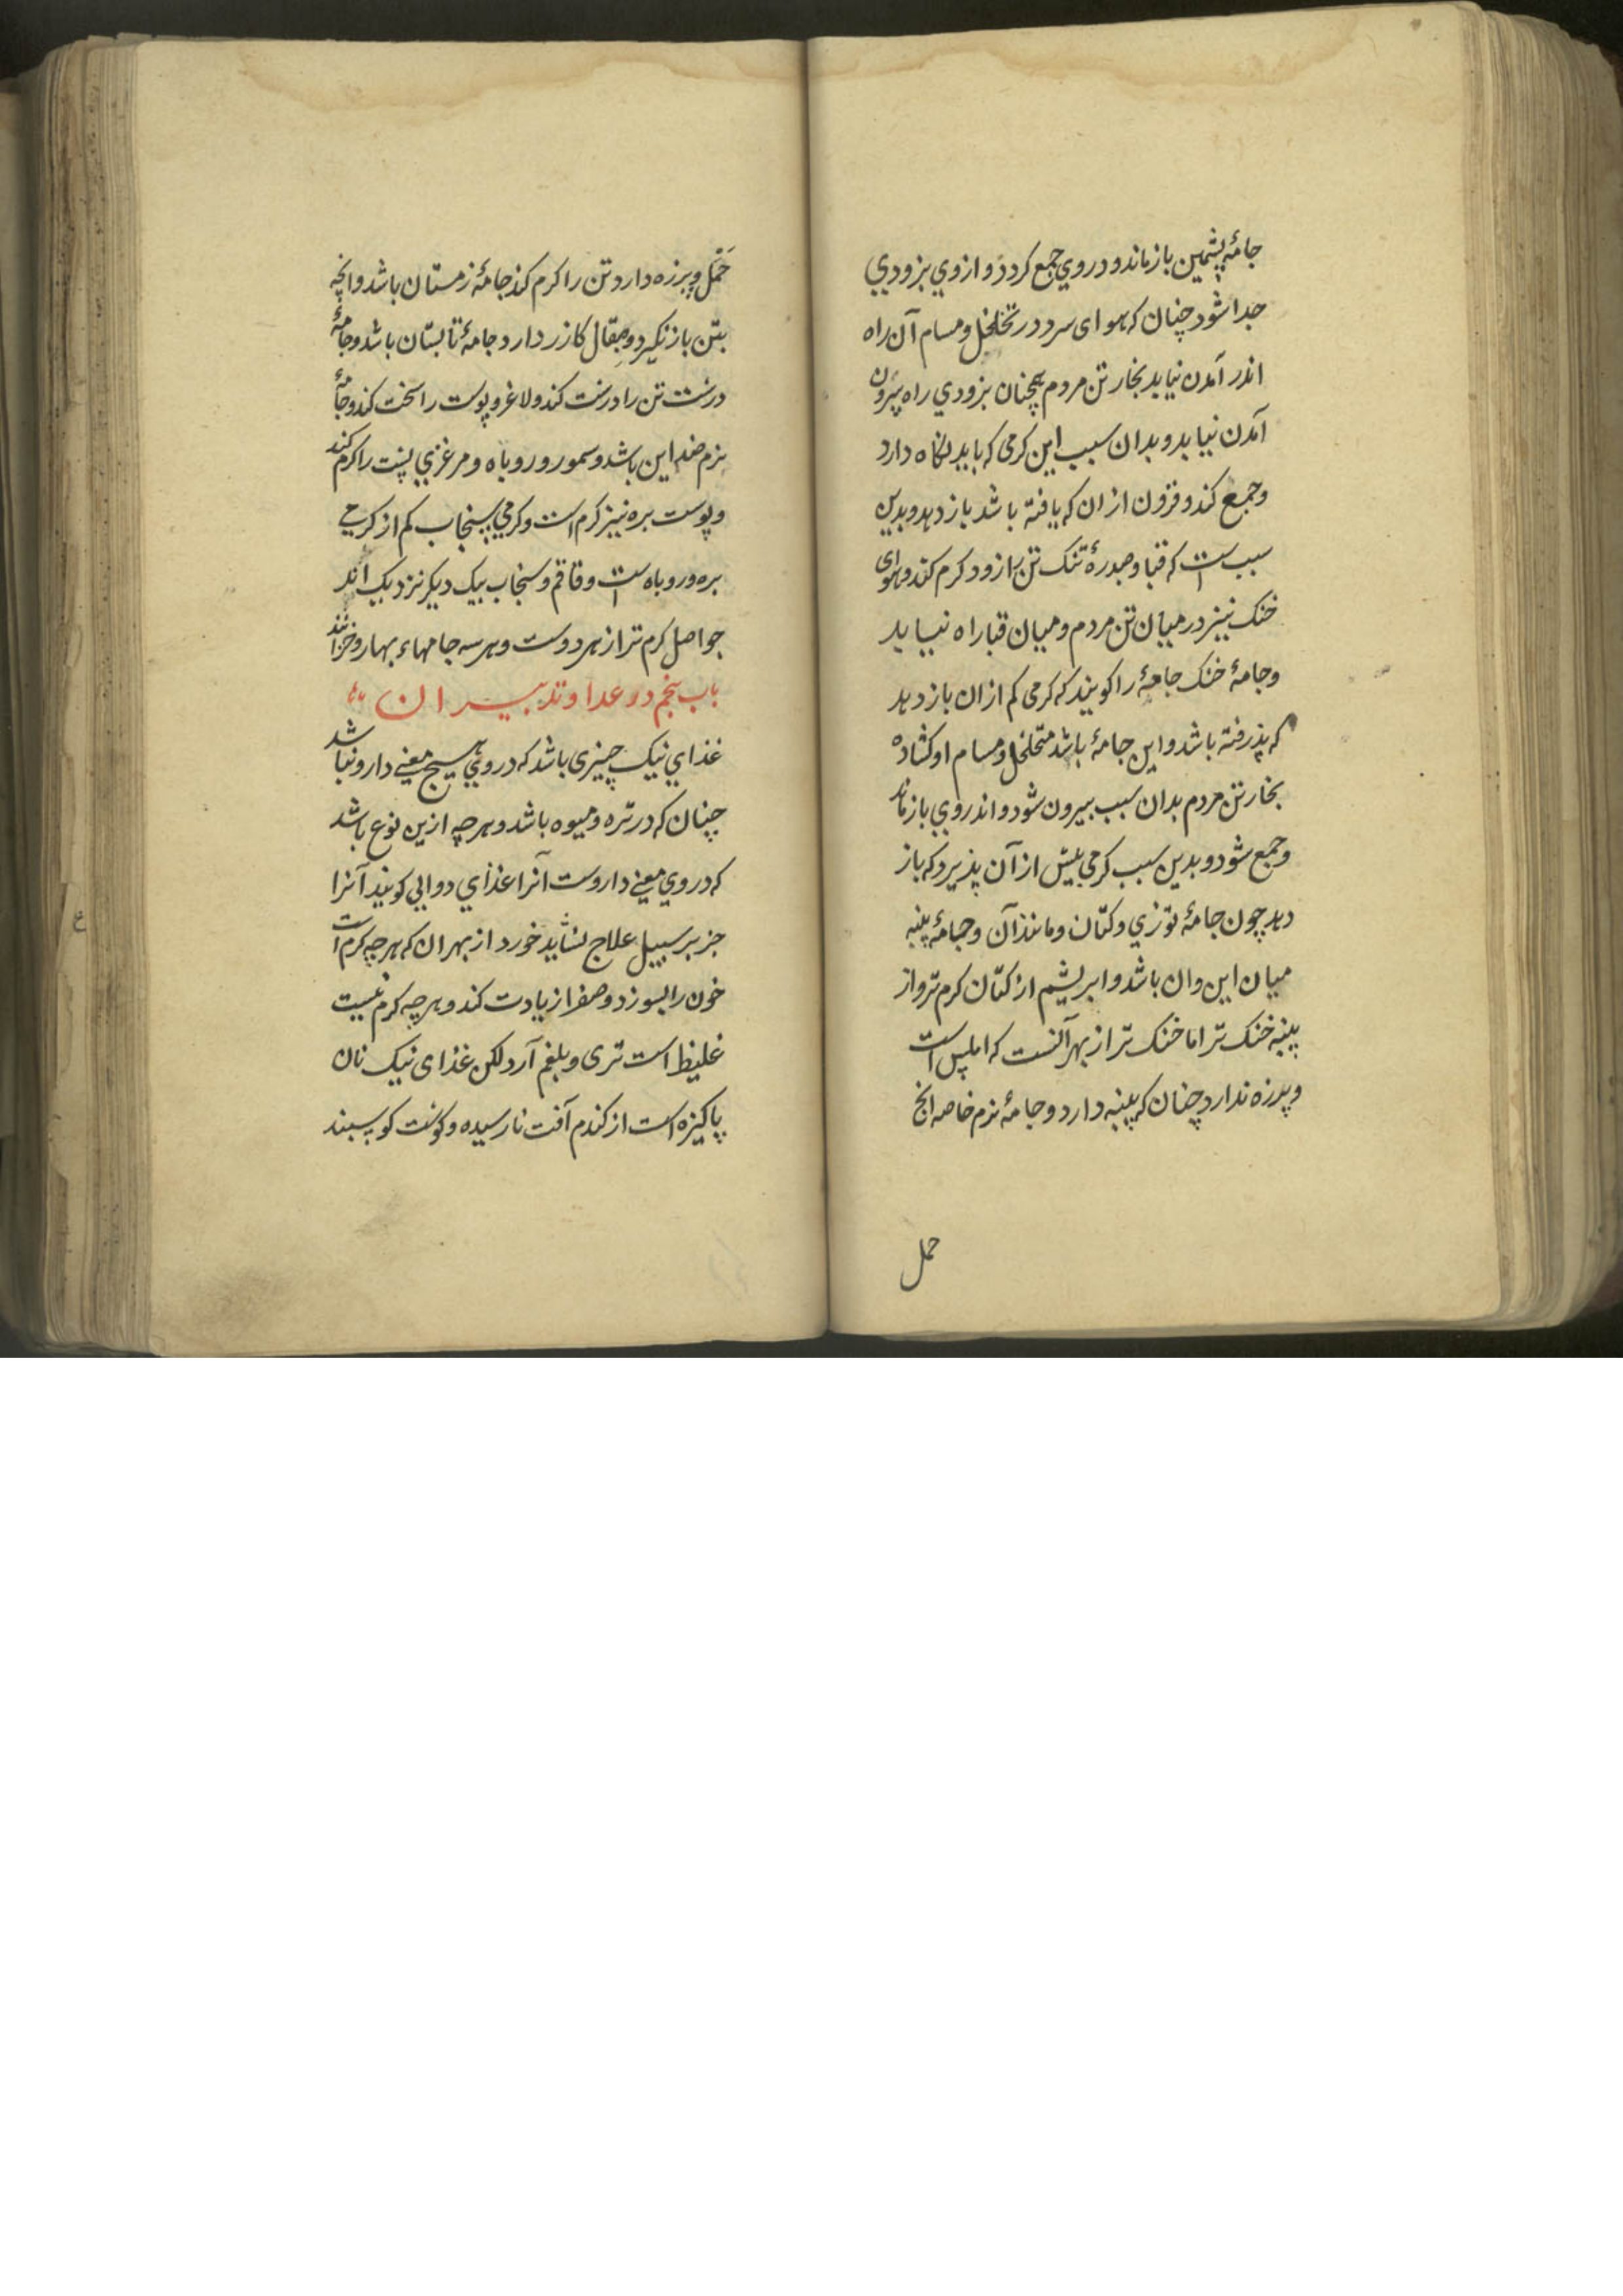 جامهٔ پشمین باز ماند و در وی جمع کردد و از وی بزودی
جدا شود چنان که هوای سرد در تخلخل و مسام آن راه
اندر آمدن نیابد بخار تن مردم همچنان بزودی راه بیرون
آمدن نیابد و بدان سبب این کرمی که باید نکاه دارد
و جمع کند و فزون از ان که یافته باشد باز دهد و بدین
سبب است که قبا و صدرهٔ تنک تن را زود کرم کند و هوای
خنک نیز در میان تن مردم و میان قبا راه نیابد
و جامهٔ خنک جامهٔ را کویند که کرمی کم از ان باز دهد
که پذرفته باشد و این جامهٔ باشد متخلخل و مسام او کشاده
بخار تن مردم بدان سبب بیرون شود و اندر وی باز نماند
و جمع شود و بدین سبب کرمی بیش از آن پذیرد که باز
دهد چون جامهٔ توزی و کتان و مانند آن و جامهٔ پنبه
میان این و ان باشد و ابریشم از کتان کرم تر و از
پنبه خنک تر اما خنک تر از بهر آنست که املس است
و پرزه ندارد چنان که پنبه دارد و جامهٔ نرم خاصه انج
خمل
خمل و پرزه دارد تن را کرم کند جامهٔ زمستان باشد و انچه
بتن باز نکیرد و صقال کازر دارد جامهٔ تابستان باشد و جامهٔ
درشت تن را درشت کند و لاغر و پوست را سخت کند و جامهٔ
نرم ضد این باشد و سمور و روباه و مرغزی پشت را کرم کند
و پوست بره نیز کرم است و کرمی سنجاب کم از کرمی
بره و روباه است و قاقم و سنجاب بیک دیکر نزدیک اند
حواصل کرم تر از هر دوست و هر سه جامهاء بهار و خزانند
باب پنجم در غدا و تدبیر ان
غذای نیک چیزی باشد که در وی هیچ معنی دارو نباشد
چنان که در تره و میوه باشد و هرچه ازین نوع باشد
که در وی معنی داروست آنرا غذای دوایی کویند آنرا
جز بر سبیل علاج نشاید خورد از بهر ان که هرچه کرم است
خون را بسوزد و صفرا زیادت کند و هرچه کرم نیست
غلیظ است تری و بلغم آرد لکن غذای نیک نان
پاکیزه است از کندم آفت نارسیده و کوشت کوسبند